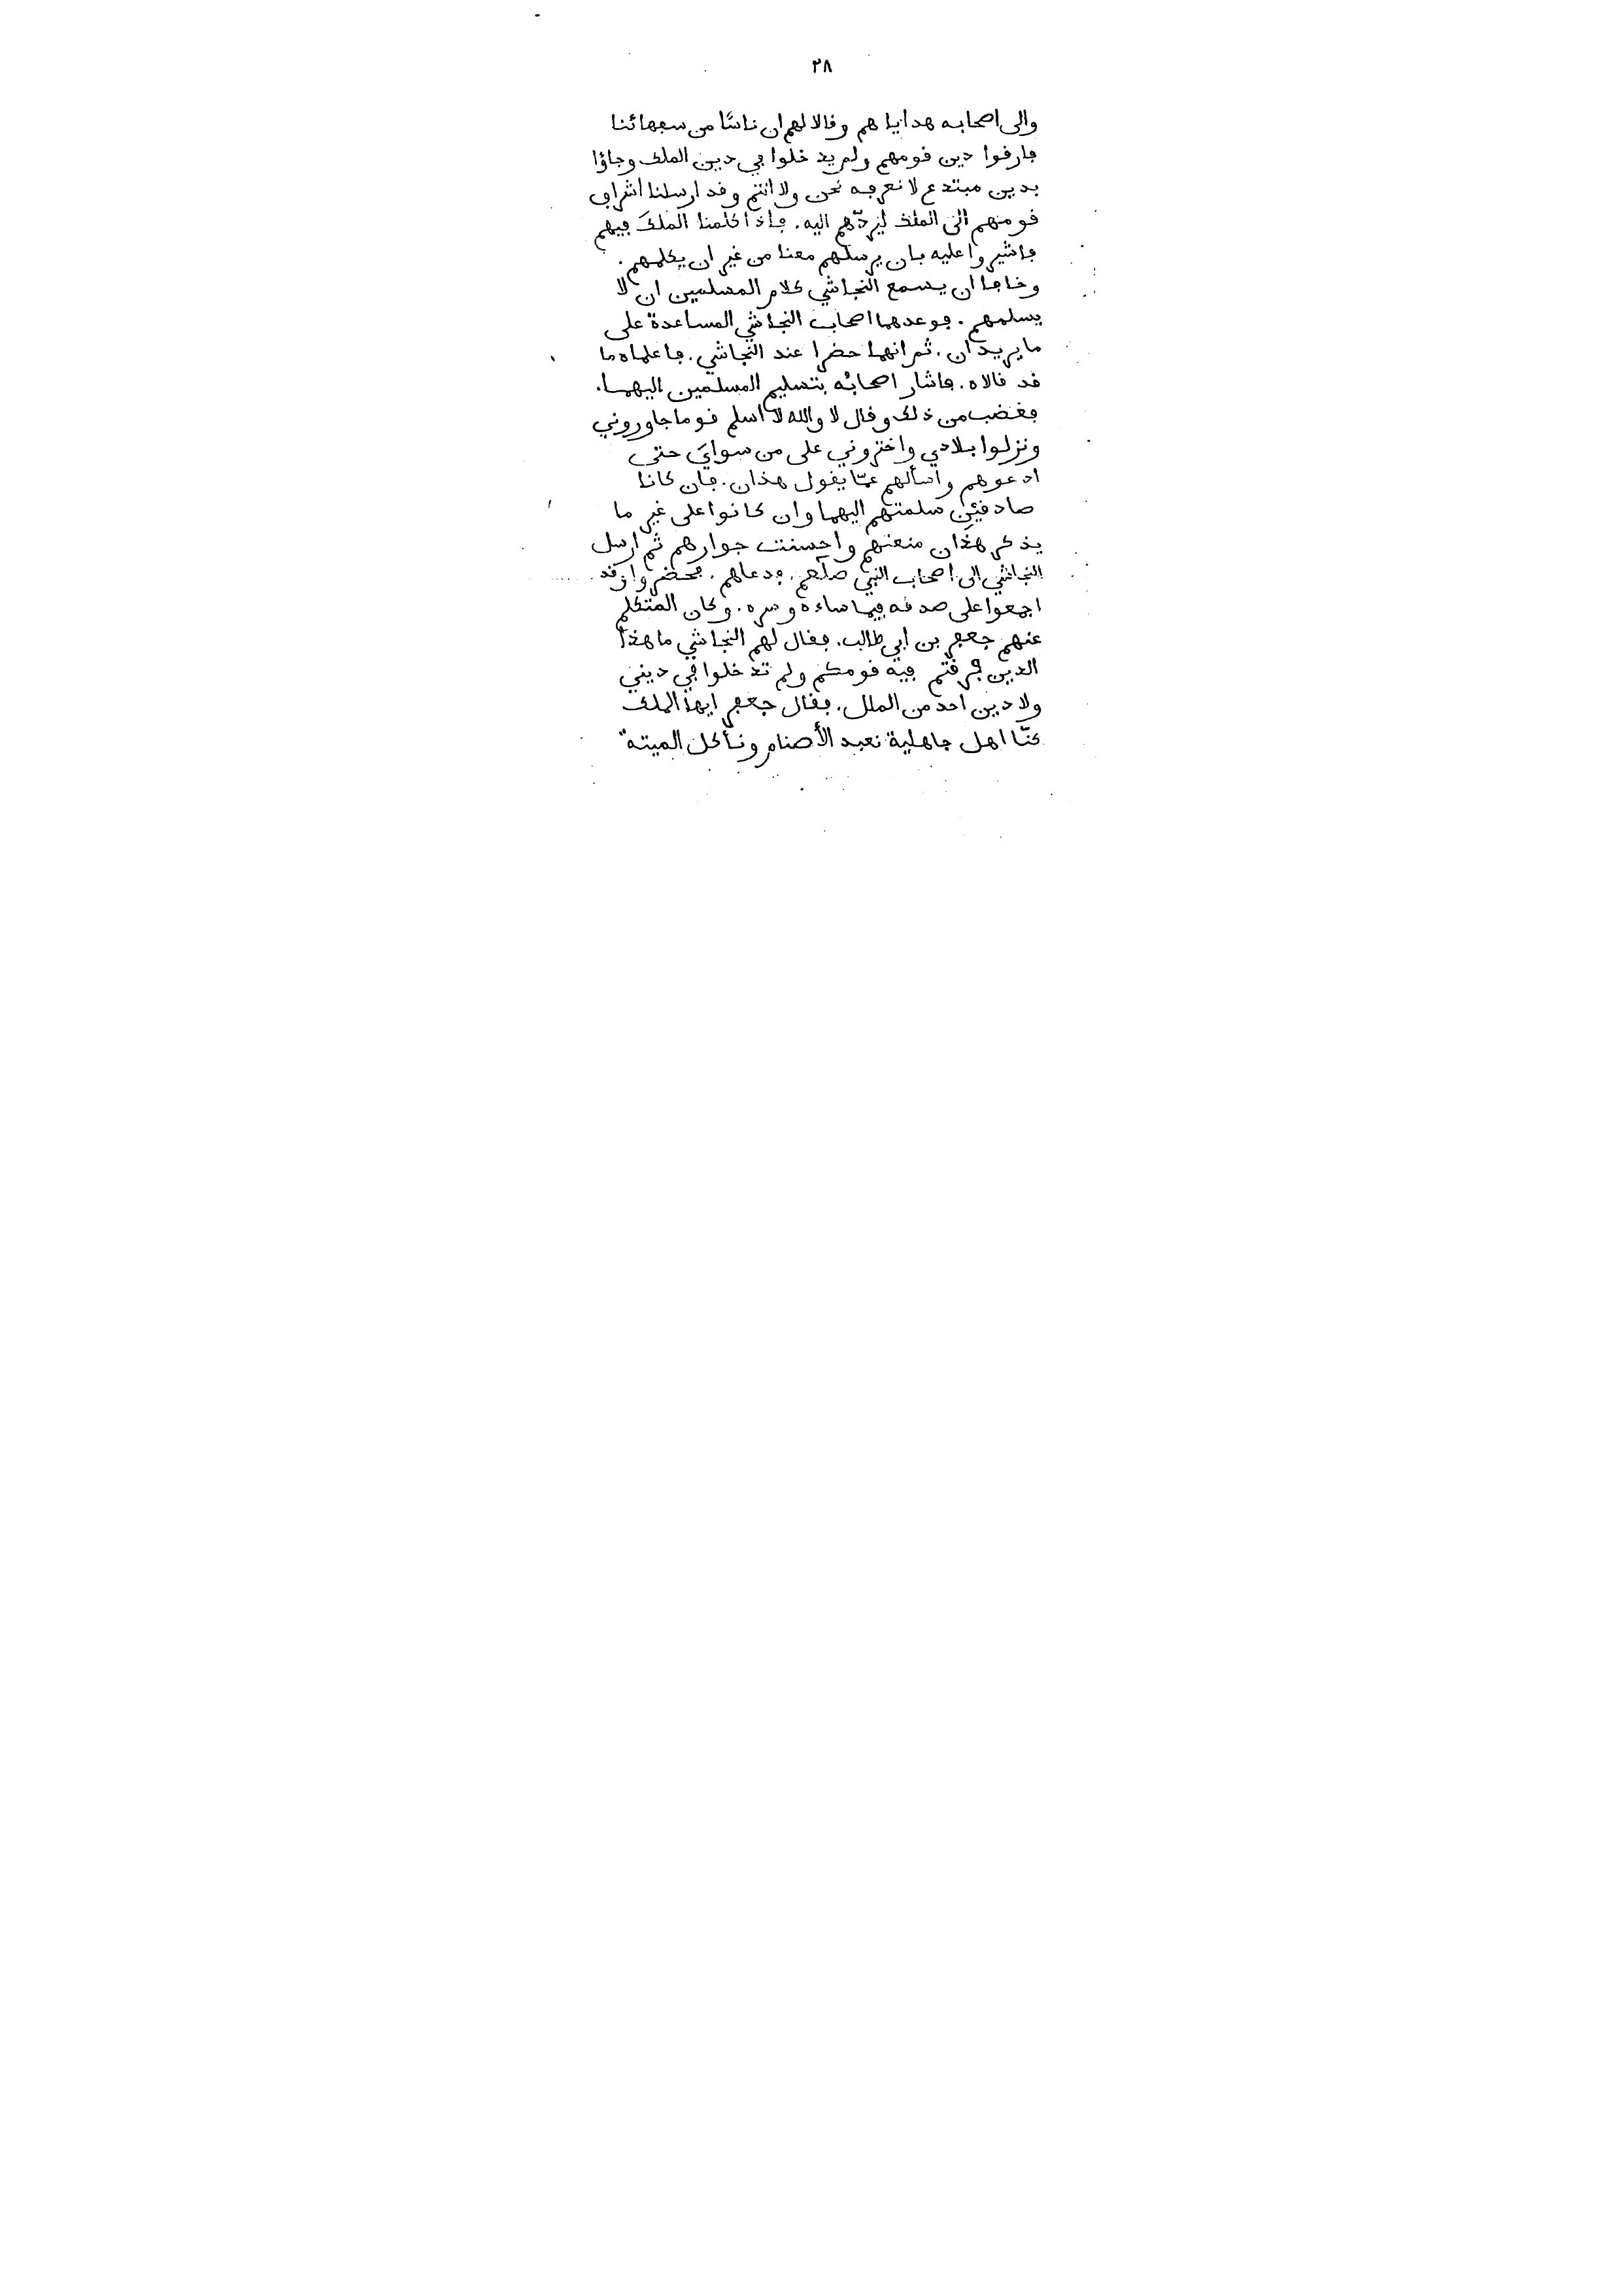 ٢٨
والى اصحابه هدايا هم وقالا لهم ان ناسًا من سفهائنا
فارقوا دين قومهم ولم يدخلوا في دين الملك وجاؤا
بدين مبتدع لا نعرفه نحن ولا انتم وقد ارسلنا اشراف
قومهم الى الملك ليردّهم اليه. فاذا كلمنا الملكَ فيهم
فاشيروا عليه بان يرسلهم معنا من غير ان يكلمهم.
وخافا ان يسمع النجاشي كلام المسلمين ان لا
يسلمهم. فوعدهما اصحاب النجاشي المساعدة على
ما يريدان. ثم انهما حضرا عند النجاشي. فاعلماه ما
قد قالاه. فاشار اصحابُه بتسليم المسلمين اليهما.
فغضب من ذلك وقال لا والله لا اسلم قوما جاوروني
ونزلوا بلادي واختروني على من سوايَ حتى
ادعوهم واسألهم عمّا يقول هذان. فان كانا
صادقيْنِ سلمتهم اليهما وان كانوا على غير ما
يذكر هذان منعتهم واحسنت جوارهم ثم ارسل
النجاشي الى اصحاب النبي صلعم. فدعاهم. فحضروا وقد
اجمعوا على صدقه فيما ساءه وسره. وكان المتكلم
عنهم جعفر بن ابي طالب. فقال لهم النجاشي ما هذا
الدين فرقتم فيه قومكم ولم تدخلوا في ديني
ولا دين احد من الملل. فقال جعفر ايها الملك
كنّا اهل جاهلية نعبد الأصنام ونأكل الميتة